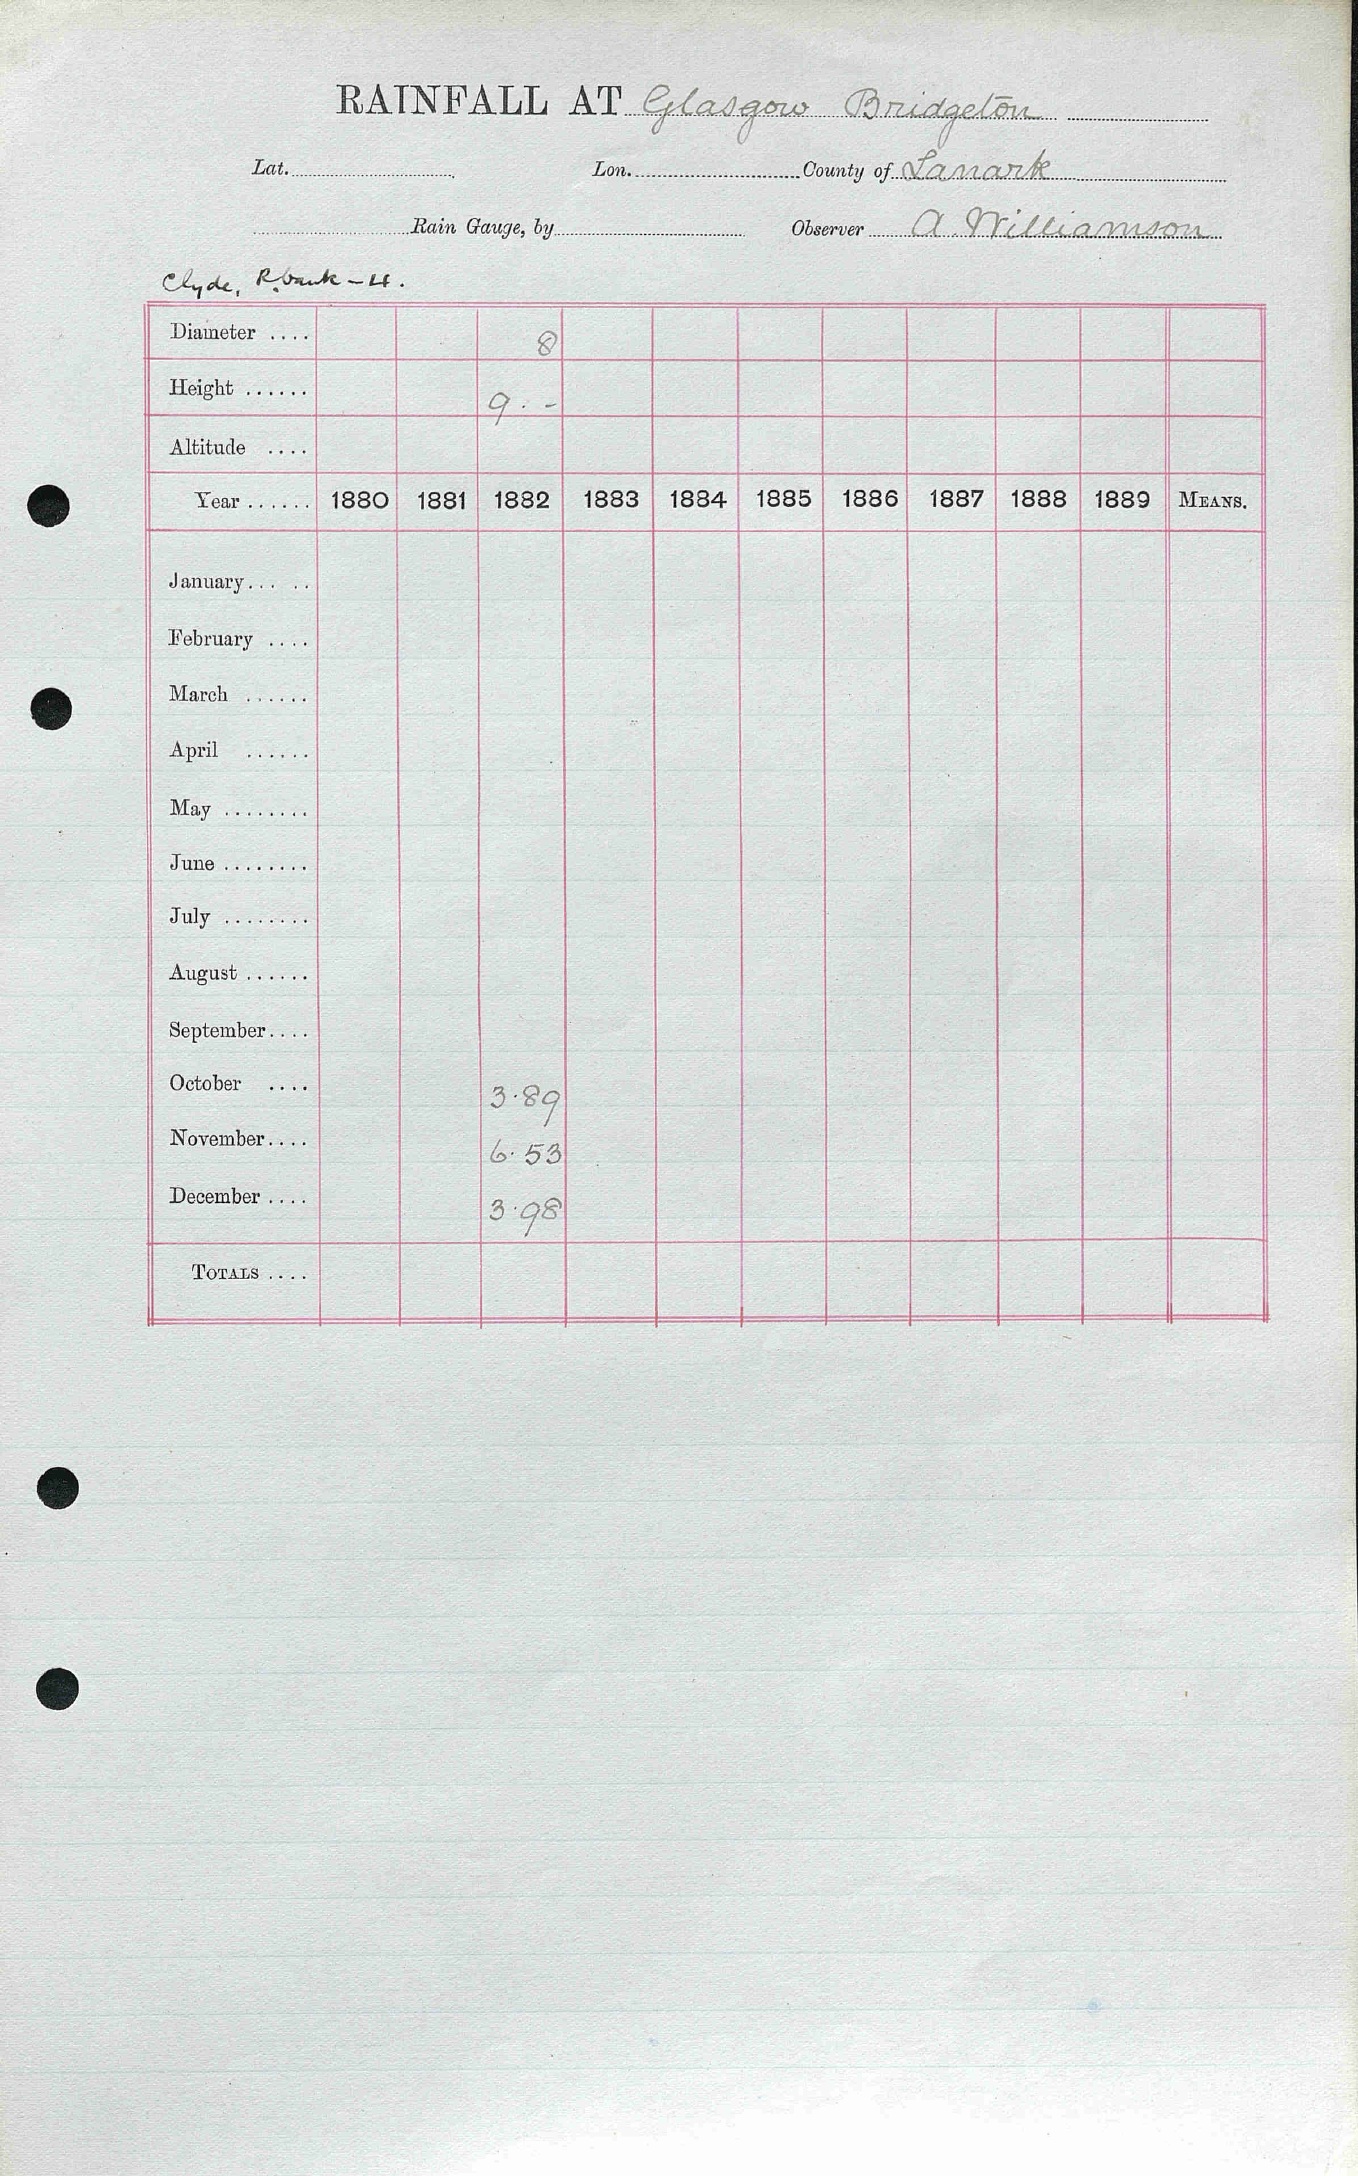 RAINFALL AT Glasgow Bridgeton
Lat. Lon. County of Lanark
Rain Gauge, by Observer A Williamson
Clyde, R. bank - 4.
Diameter .... 8
Height ...... 9 . -
Altitude ....
Year ...... 1880 1881 1882 1883 1884 1885 1886 1887 1888 1889 MEANS.
January... ..
February ....
March ......
April ......
May ........
June ........
July ........
August ......
September....
October .... 3.89
November.... 6.53
December .... 3.98
TOTALS ....